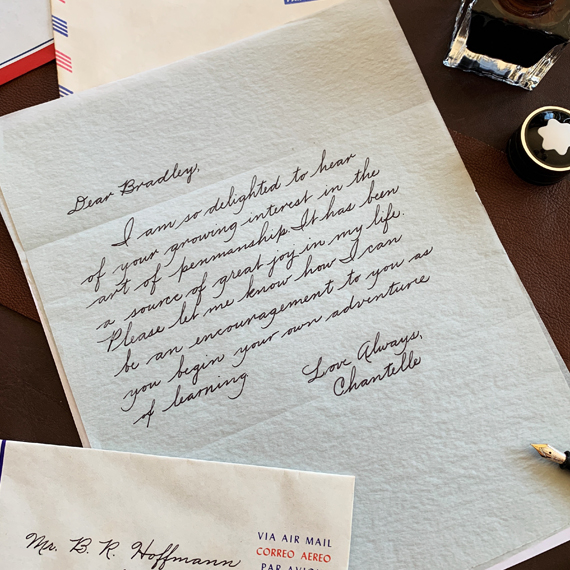 Dear Bradley,
I am so delighted to hear
of your growing interest in the
art of penmanship. It has been
a source of great joy in my life.
Please let me know how I can
be an encouragement to you as
you begin your own adventure
of learning
Love Always,
Chantelle
Mr. B. R. Hoffmann
VIA AIR MAIL
CORREO AEREO
PAR AVION